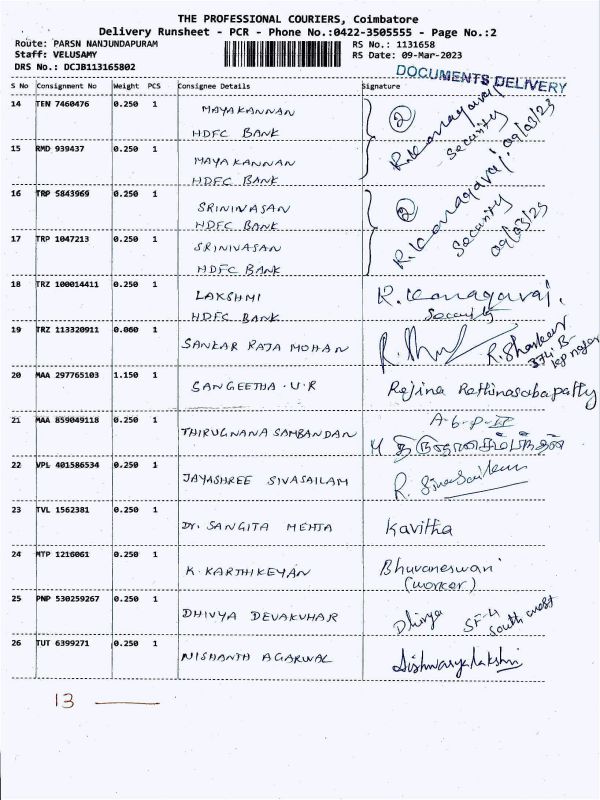 THE PROFESSIONAL COURIERS, Coimbatore
Delivery Runsheet - PCR - Phone No.:0422-3505555 - Page No.:2
Route: PARSN NANJUNDAPURAM
RS No.: 1131658
Staff: VELUSAMY
RS Date: 09-Mar-2023
DRS No.: DCJB113165802
DOCUMENTS DELIVERY
S No Consignment No Weight PCS Consignee Details Signature
14 TEN 7460476 0.250 1 MAYAKANNAN
HDFC BANK
2
R.Kanagaraj
Security
09/03/23
15 RMD 939437 0.250 1 MAYAKANNAN
HDFC BANK
16 TRP 5843969 0.250 1 SRINIVASAN
HDFC BANK
2
R.Kanagaraj.
Security
09/03/23
17 TRP 1047213 0.250 1 SRINIVASAN
HDFC BANK
18 TRZ 100014411 0.250 1 LAKSHMI R.Kanagaraj.
HDFC BANK Security
19 TRZ 113320911 0.060 1 SANKAR RAJA MOHAN
20 MAA 297765103 1.150 1 SANGEETHA.V.R Rejina Rathinasabapatty
21 MAA 859049118 0.250 1 THIRUGNANA SAMBANDAN A-6-P-II
திருஞானசம்பந்தன்
22 VPL 401586534 0.250 1 JAYASHREE SIVASAILAM R. Sivasailam
23 TVL 1562381 0.250 1 Dr. SANGITA MEHTA Kavitha
24 MTP 1216061 0.250 1 K.KARTHIKEYAN Bhuvaneswari
(worker)
25 PNP 530259267 0.250 1 DHIVYA DEVAKUHAR Dhivya SF-4
South west
26 TUT 6399271 0.250 1 NISHANTH AGARWAL Aishwaryalakshmi
13